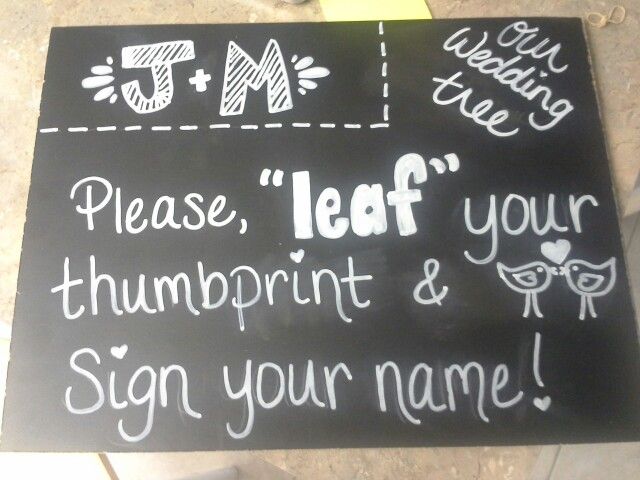 J + M
our
wedding
tree
Please, "leaf" your
thumbprint &
Sign your name!